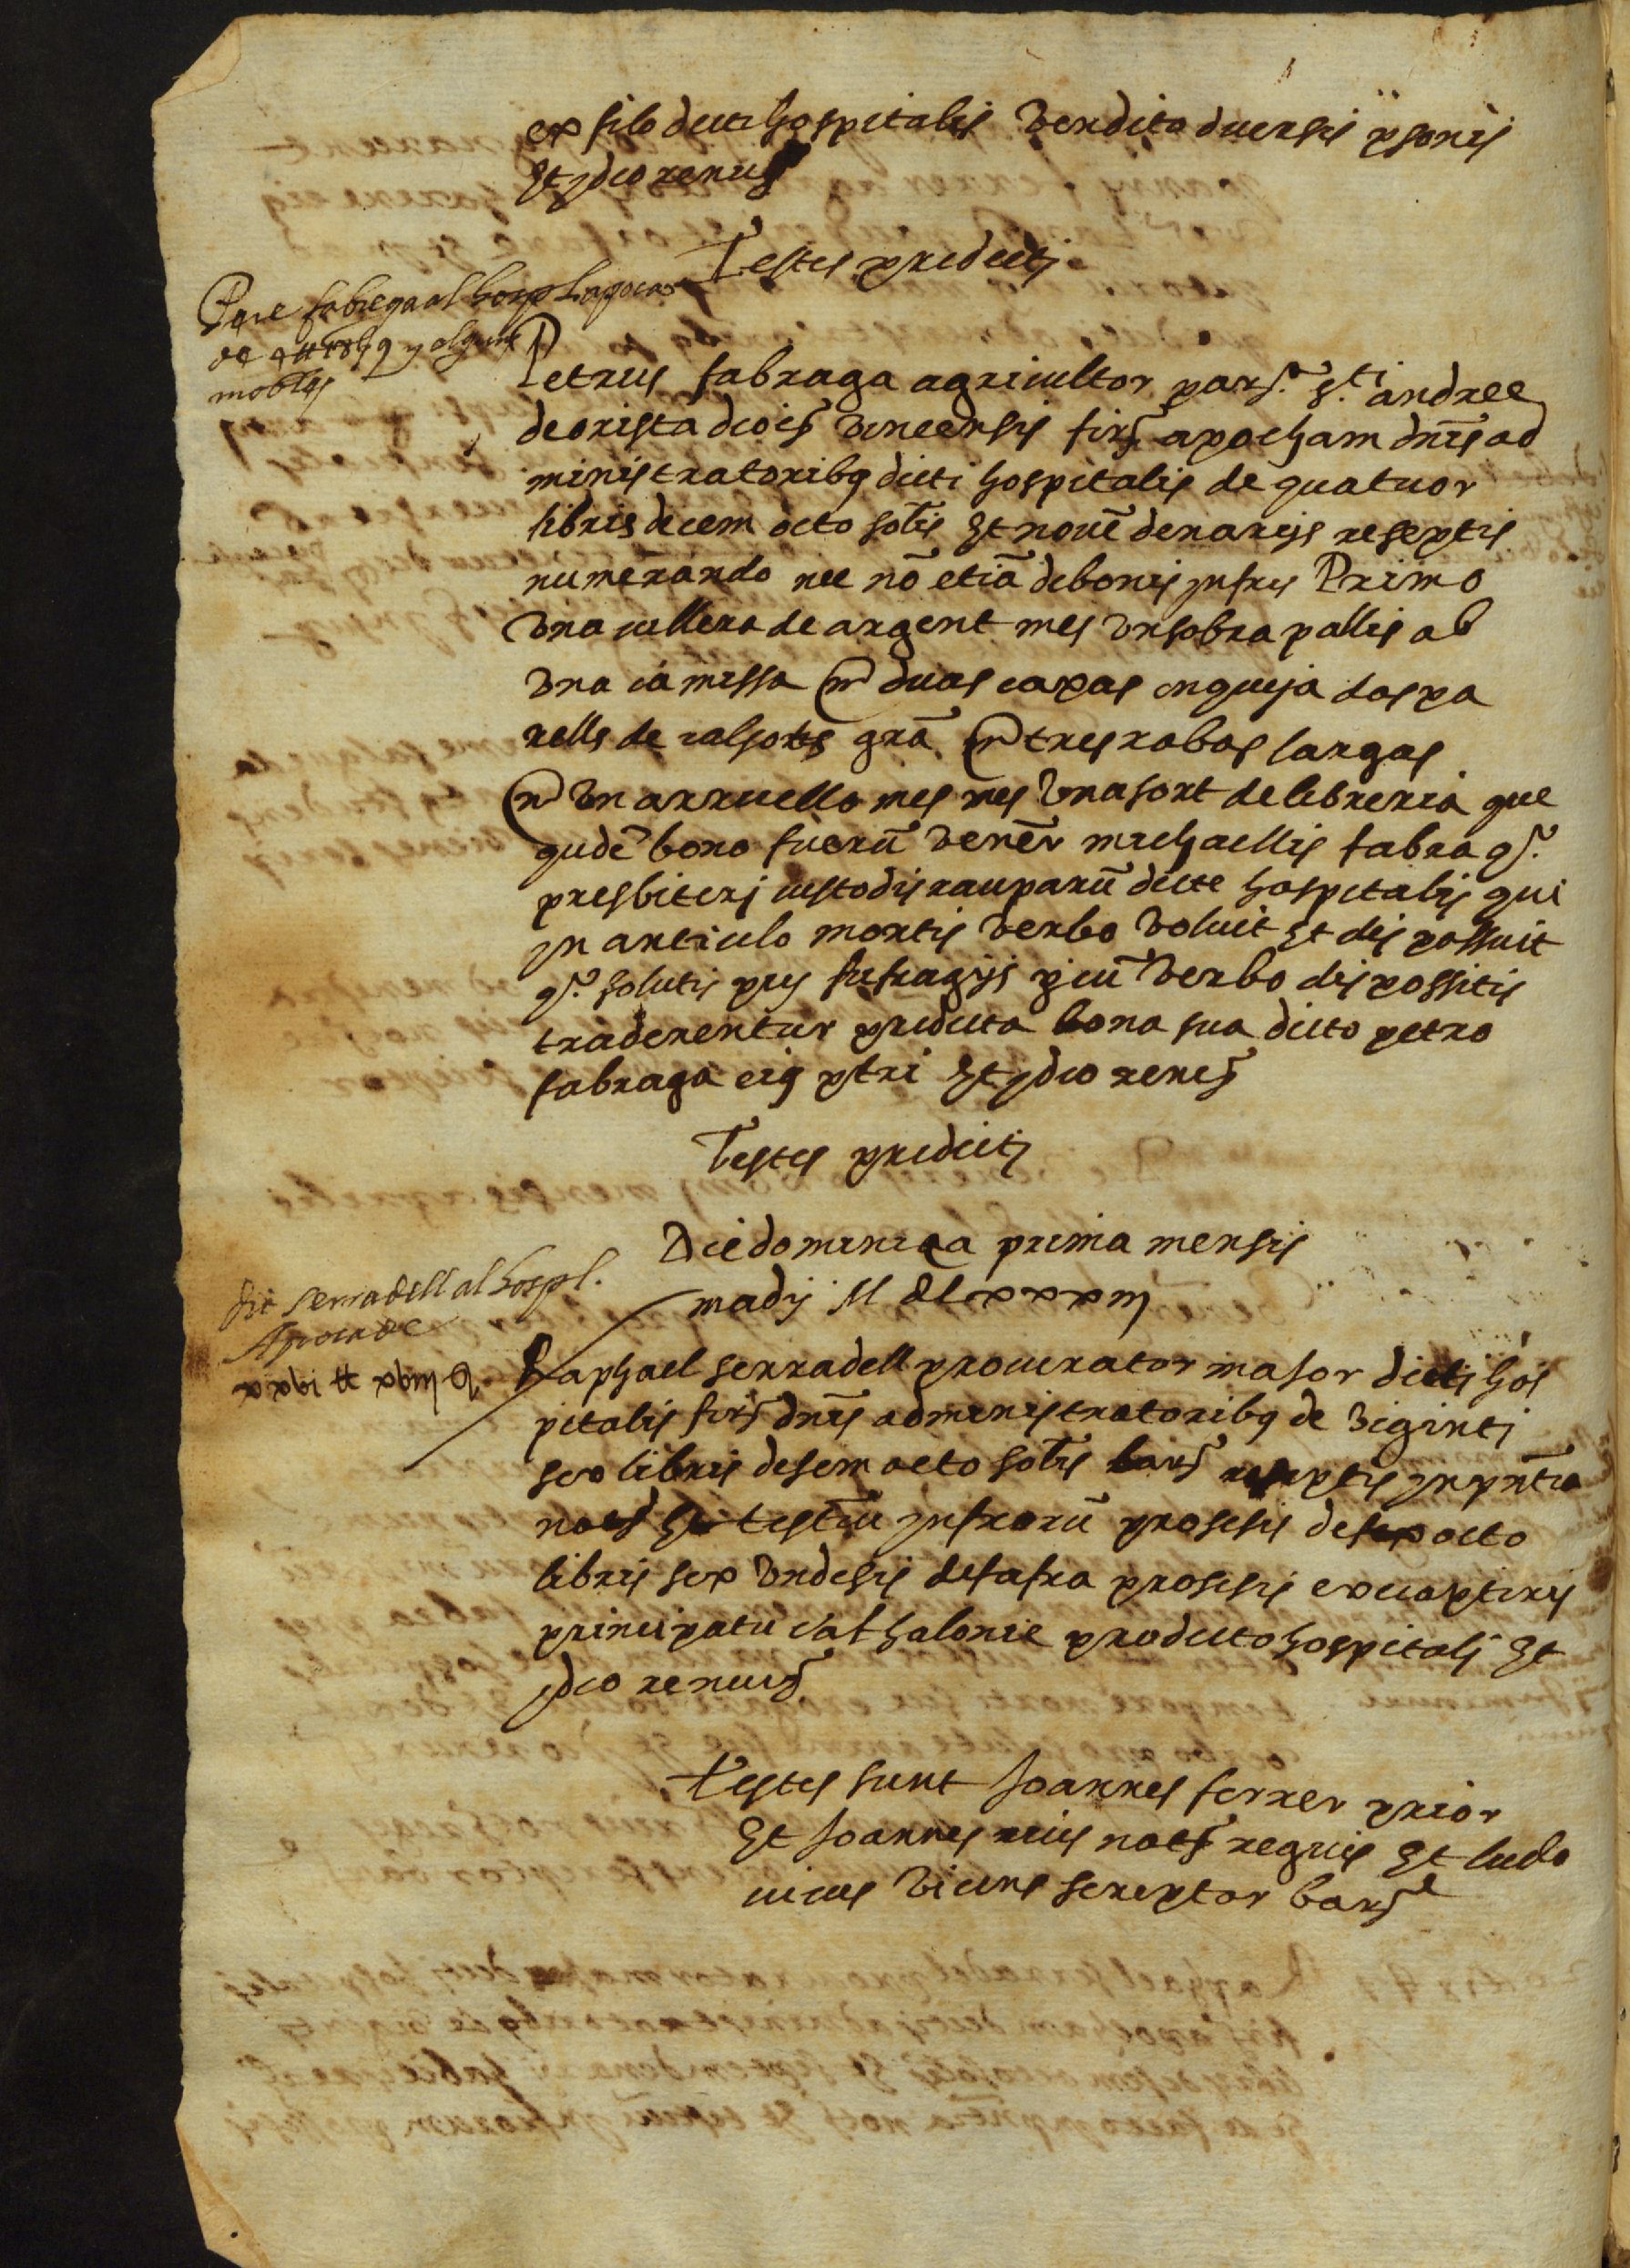 ex filo dicti hospitalis vendito diversis psonis
Et ideo renus
Testes predicti
Pere fabrega al hospl apoca
de 4 ll 18 s 9 y alguns
mobles
Petrus fabraga agricultor parr.ª s.ti andree
de orista diocis vincensis firꝭ apocham dnis ad
ministratoribꝰ dicti hospitalis de quatuor
libris decem octo solis Et novē denarijs reseptis
numerando nec nō etiā de bonis infris Primo
una cullera de argent mes un sobra pallis ab
una camissa m duas capas ongueja dos pa
rells de calsotes grā m tres robas largas
m un arruello mes mes una sort de libreria que
qudē bona fuerū venēr michaellis fabrag.
presbiteri custodis rauparū dicte hospitalis qui
in articulo mortis verbo voluit Et dis possuit
q. solutis pus sufragijs p cū verbo dis possitis
traderentur predicta bona sua dicto petro
fabraga eiꝰ ptri Et ideo renꝭ
Testes predicti
Die dominica prima mensis
madij M d Lxxxiij
Serradell al hospl.
Apoca de
xxvi ll xviij s
Raphael serradell procurator maior dicti hos
pitalis firꝭ dnis administratoribꝰ de viginti
sex libris desem octo solis barꝭ reseptis in pntia
notꝭ Et testiū infrorū pro sesis de sex octo
libris sex undesis de safra pro sesis ex captiris
principatu Cathalonie pro dicto hospitali Et
ideo renus
Testes sunt Joannes ferrer prior
Et Joannes reus notꝭ regius Et ludo
vicus vicens scriptor barꝭ